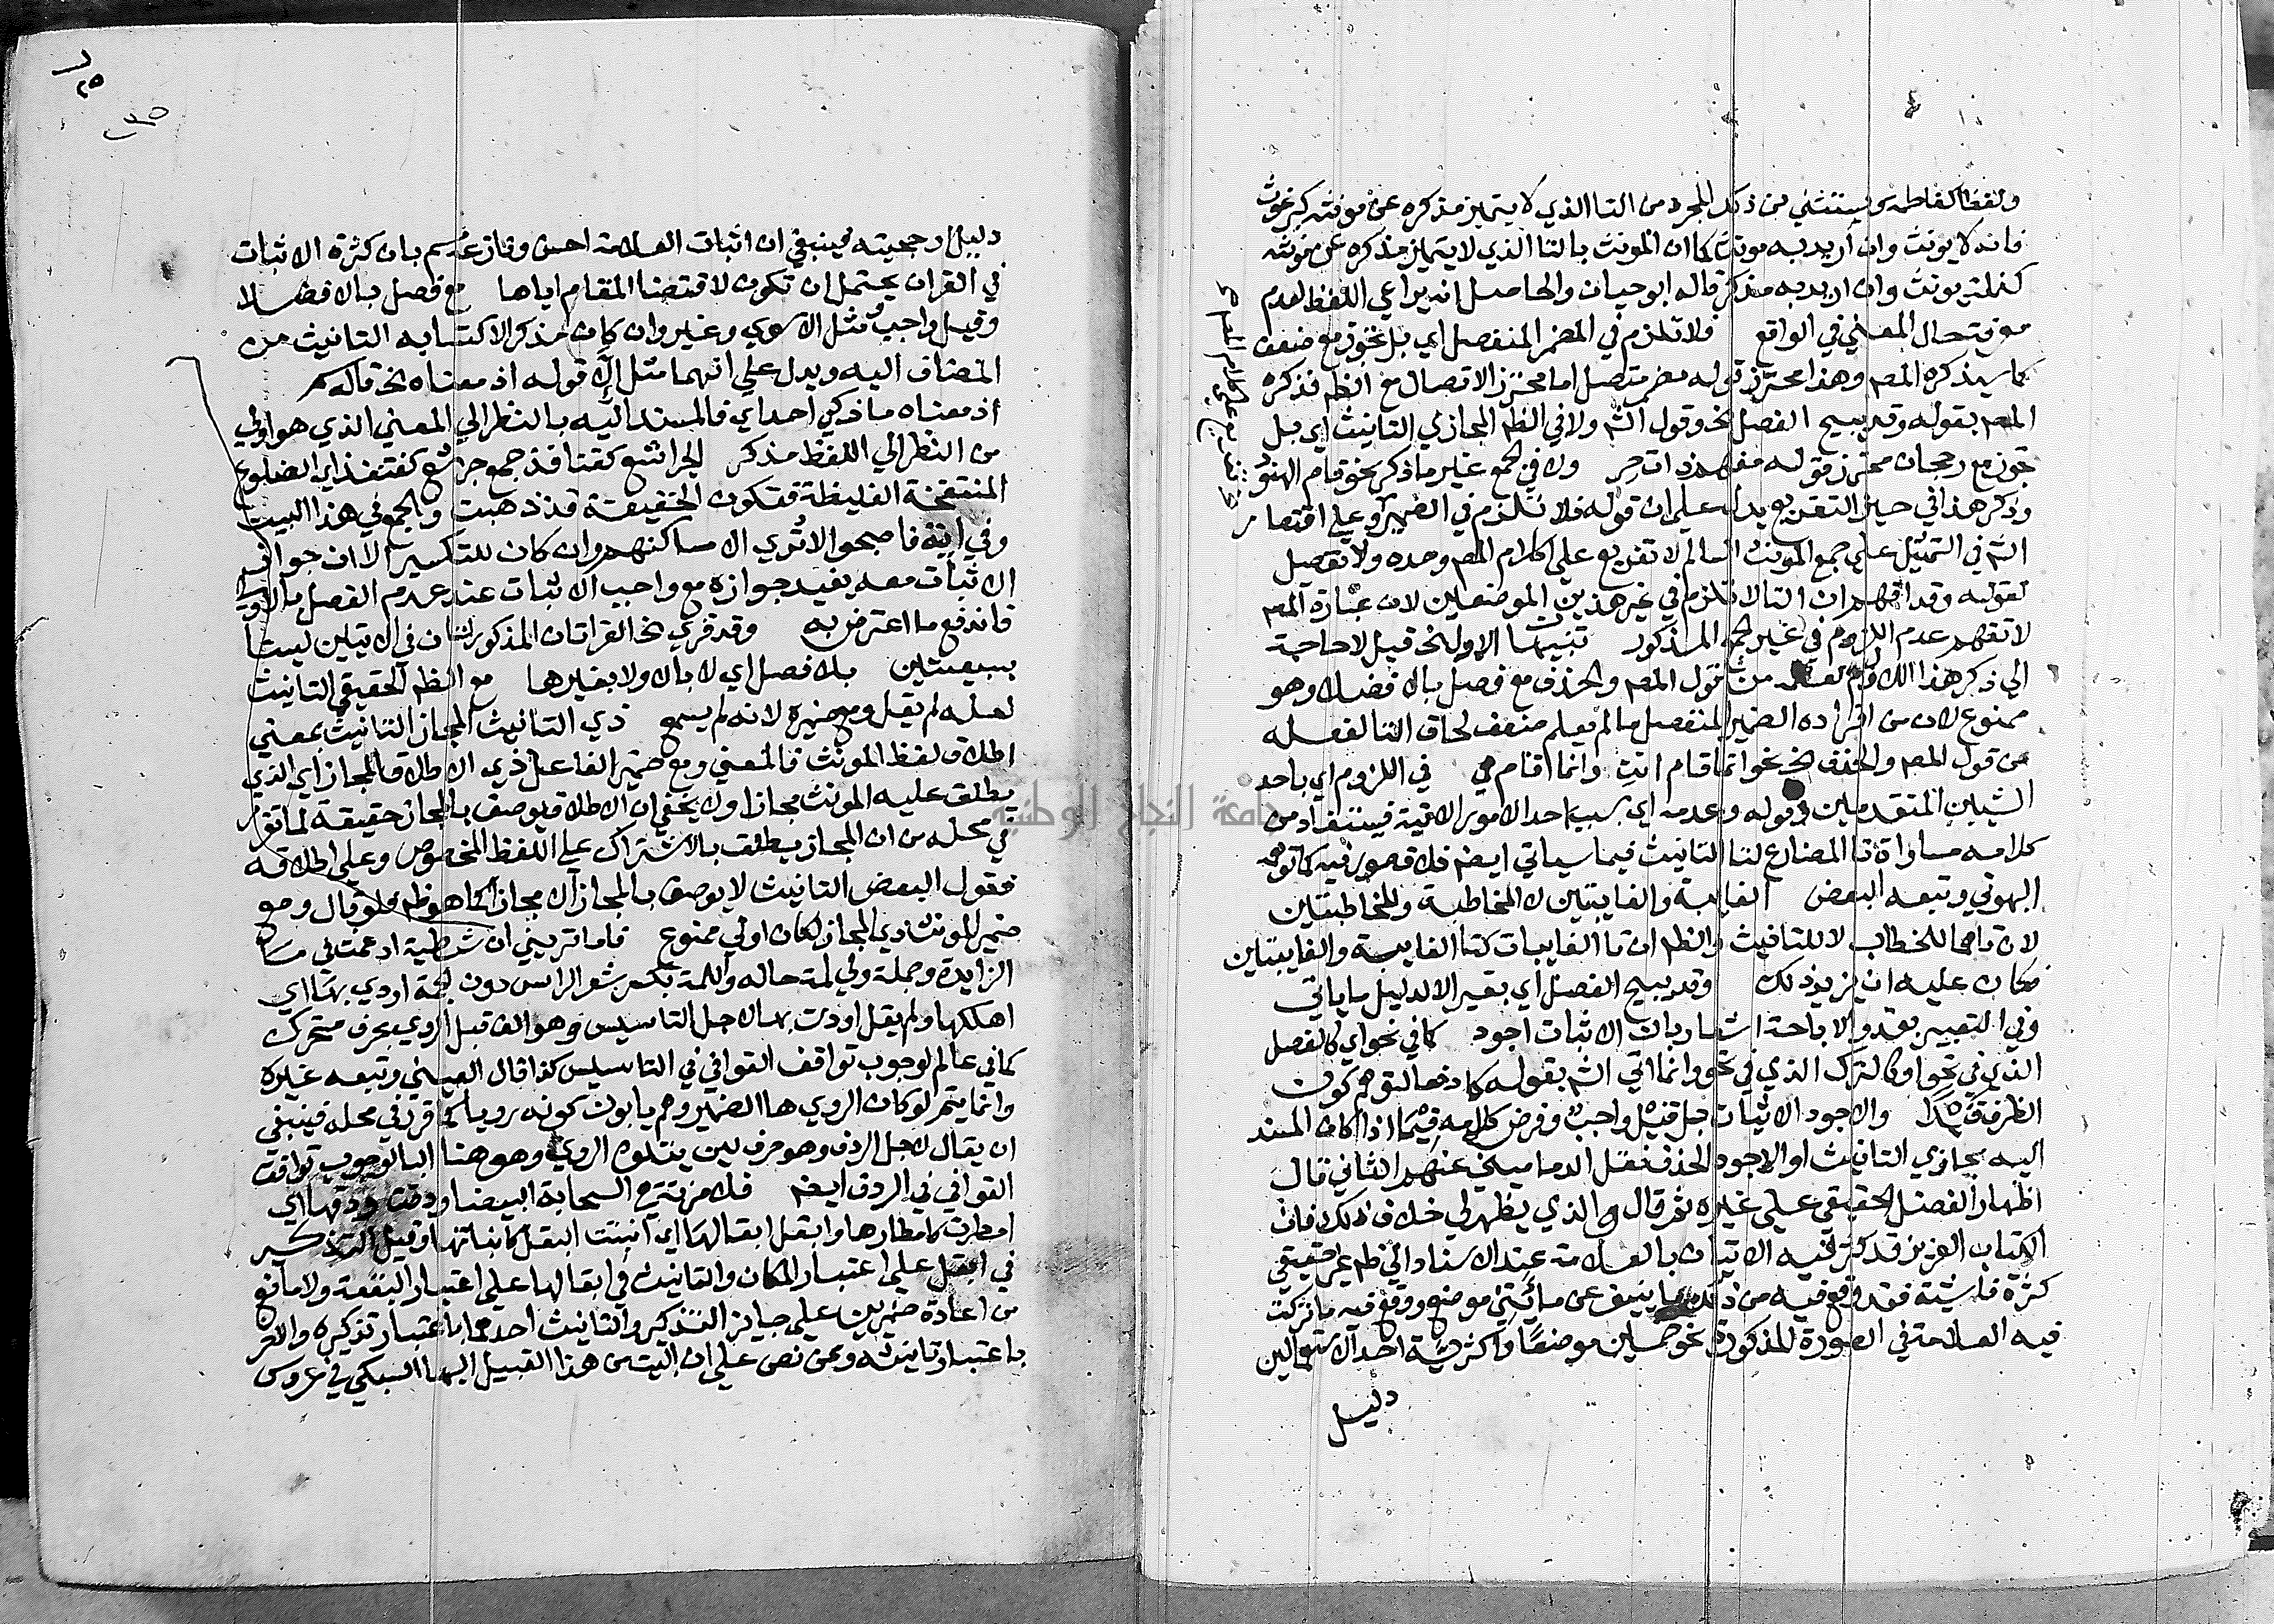 ولفظا كفاطمة ويستثني من ذلك المجرد من التا الذي لا يتميز مذكره عن مونثه كبرغوث
فانه لا يونث وان اريد به مونث كما ان المونث بالتا الذي لا يتميز مذكره عن مونثه
كنملة يونث وان اريد به مذكر قاله ابو حيان والحاصل انه يراعي اللفظ لعدم
معرفة حال المعني في الواقع فلا تلزم في المضمر المنفصل اي بل تجوز مع ضعف
كما سيذكره المصم وهذا محترز قوله مضمر متصل اما محترز الاتصال مع الظم فذكره
المصم بقوله وقد يبيح الفصل نحو وقول الشم ولا في الظم المجازي التانيث اي بل
تجوز مع رجحان محترز قوله مفهم ذات حر ولا في الجمع غير ما ذكر نحو قام الهنود
وذكر هذا في حيز التفريع يدل علي ان قوله فلا تلزم في الضمير وعلي اقتصار
الشم في التمثيل علي جمع المونث السالم لا تفريع علي كلام المصم وحده ولا تفصيل
لقوله وقد افهم ان التا لا تلزم في غير هذين الموضعين لان عبارة المصم
لا تفهم عدم اللزوم في غير الجمع المذكور تنبيهات الاول نحو قيل لا حاجة
الي ذكر هذا من قول المصم والحذف مع فصل بالا فضلا وهو
ممنوع لان من افراده الضمير المنفصل ما لم يعلم ضعف لحاق التا لفعله
من قول المصم والحذف نحو نحو انما قام انت وانما قام هي في اللزوم اي باحد
الشيين المتقدمين وقوله وعدمه اي بسبب احد الامور الاتية فيستفاد من
كلامه مساواة تا المضارع لتا التانيث فيما سياتي ايضم فلا قصور فيه كما توهمه
البهوتي وتبعه البعض الغايبة والغايبتين لا المخاطبة وللمخاطبتين
لان تاهما للخطاب لا للتانيث والظم ان تا الغايبات كتا الغايبة والغايبتين
فكان عليه ان يزيد ذلك وقد يبيح الفصل اي بغير الا لدليل ما ياتي
وفي التعبير بقد والاباحة اشعار بان الاثبات اجود كما في نحو اي كالفصل
الذي في نحو او كالترك الذي في نحو وانما اتي الشم بقوله كما دفعا لتوهم كون
الظرف قيدا والاجود الاثبات بل قيل واجب وفرض كلامه فيما اذا كان المسند
اليه مجازي التانيث او الاجود الحذف نقل الدماميني عنهم الثاني قال
اظهارا لفضل الحقيقي علي غيره ثم قال والذي يظهر لي خلاف ذلك فان
الكتاب العزيز قد كثر فيه الاتيان بالعلامة عند الاسناد الي ظم غير حقيقي
كثرة فاشية فقد وقع فيه من ذلك ما ينيف عن مائتي موضع ووقع فيه ما تركت
فيه العلامة في الصورة المذكورة نحو خمسين موضعا واكثرية احد الاستعمالين
دليل
دليل ارجحيته فينبغي ان اثبات العلامة احسن ونازعه سم بان كثرة الاثبات
في القران يحتمل ان تكون لاقتضا المقام اياها مع فصل بالا فضلا
وقيل واجب مثل الا سوي وغير وان كان مذكرا لاكتسابه التانيث من
المضاف اليه ويدل علي انهما مثل الا قوله اذ معناه نحو قاله سم
اذ معناه ما ذكي احد اي فالمسند اليه بالنظر الي المعني الذي هو اولي
من النظر الي اللفظ مذكر الجراشع كقنافذ جمع جرشع كقنفذ اي الضلوع
المنتفخة الغليظة فتكون الحقيقة قد ذهبت والجمع في هذا البيت
وفي اية فاصبحوا لا تري الا مساكنهم وان كان للتكسير الا ان جواز
الاثبات معه يفيد جوازه مع واجب الاثبات عند عدم الفصل بالاولي
فاندفع ما اعترض به وقد قري نحو القراتان المذكورتان في الايتين ليستا
بسبعيتين بلا فصل اي لا بالا ولا بغيرها مع الظم الحقيقي التانيث
لعله لم يقل ومع ضميره لانه لم يسمع ذي التانيث المجاز التانيث بمعني
اطلاق لفظ المونث فالمعني ومع ضمير الفاعل ذي الاطلاق المجاز اي الذي
يطلق عليه المونث مجازا ولا يخفي ان الاطلاق يوصف بالمجاز حقيقة لما تقرر
في محله من ان المجاز يطلق بالاشتراك علي اللفظ المخصوص وعلي اطلاقه
فقول البعض التانيث لا يوصف بالمجاز الا مجازا كما هو ظم ولو قال ومع
ضمير المونث ذي المجاز لكان اولي ممنوع فاما تريني ان شرطية ادغمت في ما
الزايدة وجملة ولي لمة حاله واللمة بكسر شعر الراس دون الجمة اودي بها اي
اهلكها ولم يقل اودت بها لاجل التاسيس وهو الف قبل الروي بحرف متحرك
كما في عالم لوجوب توافق القوافي في التاسيس كذا قال العيني وتبعه غيره
وانما يتم لو كان الروي ها الضمير وهم يابون كونه رويا كما قرر في محله فينبغي
ان يقال لاجل الردف وهو حرف لين يتلوه الروي وهو هنا البا لوجوب توافق
القوافي في الردف ايضم فلا مزنة هي السحابة البيضا ودقت ودقها اي
امطرت كامطارها وابقل ابقالها اي انبتت البقل كانباتها وقيل التذكير
في ابقل علي اعتبار المكان والتانيث في ابقالها علي اعتبار البقعة ولا مانع
من اعادة ضميرين علي جايز التذكير والتانيث احدهما باعتبار تذكيره والاخر
باعتبار تانيثه وممن نص علي ان البيت من هذا القبيل البها السبكي في عروس
جامعة النجاح الوطنية